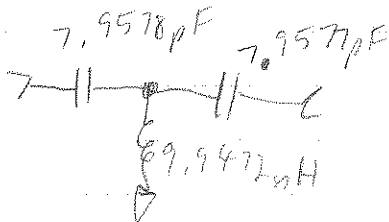 7.9578pF
7.9577pF
69.9472nH